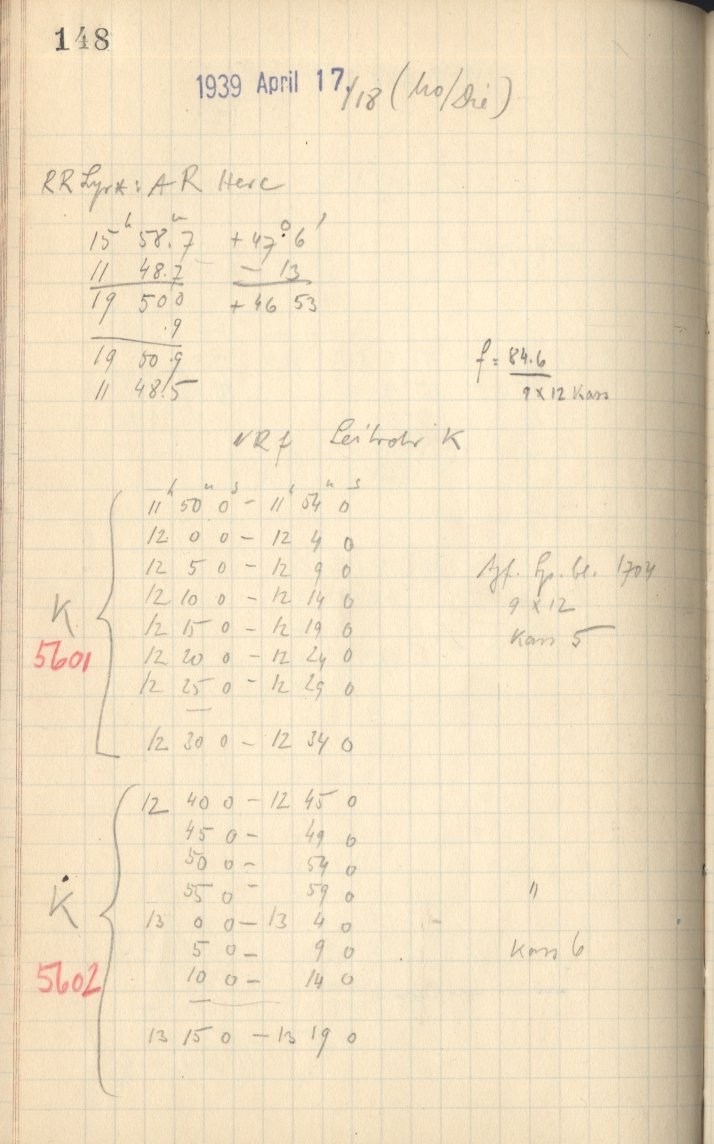 148
1939 April 17./18 (Mo/Die)
RR Lyr*: AR Herc
15h 58.m7 +47°6'
11 48.7 - 13
19 500 +46 53
.9
19 50.9
11 48.5
f = 84.6
9 x 12 Kass
Leitrohr K
11h 50m 0s - 11h 54m 0s
12 0 0 - 12 4 0
12 5 0 - 12 9 0
12 10 0 - 12 14 0
12 15 0 - 12 19 0
12 20 0 - 12 24 0
12 25 0 - 12 29 0
12 30 0 - 12 34 0
K
5601
1704
9 x 12
Kass 5
12 40 0 - 12 45 0
45 0 - 49 0
50 0 - 54 0
55 0 - 59 0
13 0 0 - 13 4 0
5 0 - 9 0
10 0 - 14 0
13 15 0 - 13 19 0
K
5602
"
Kass 6